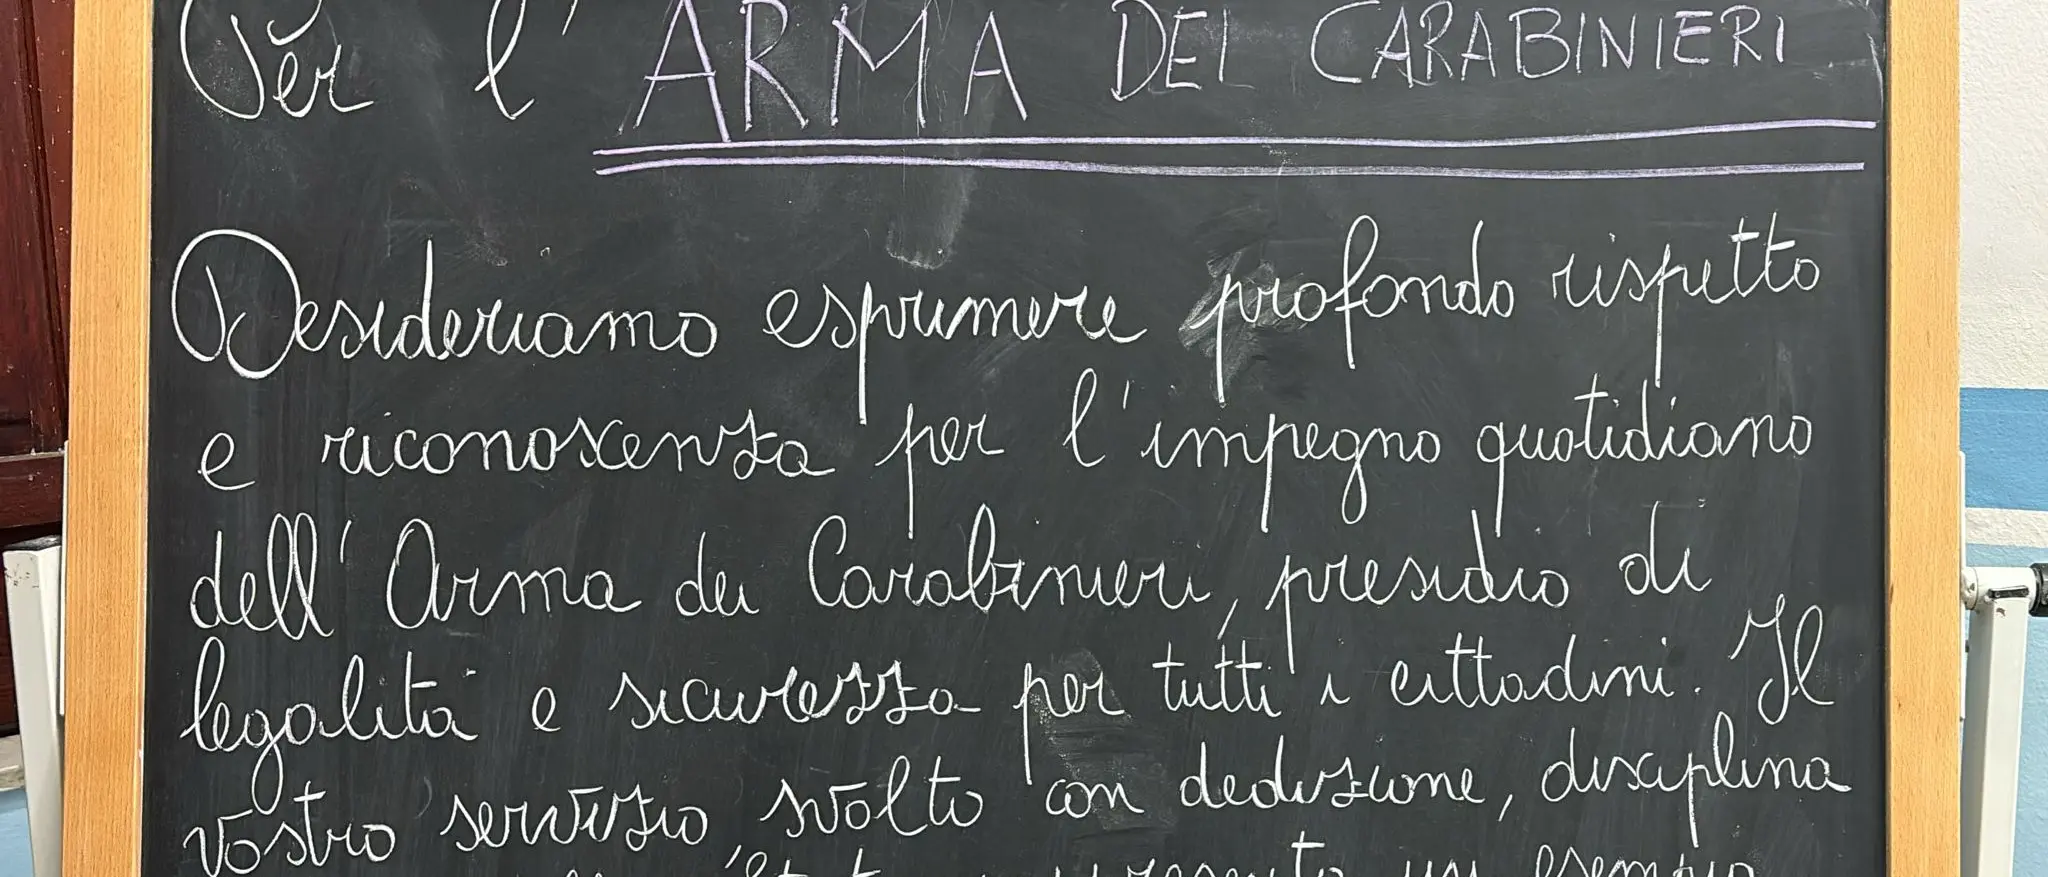 Per l'ARMA DEI CARABINIERI
Desideriamo esprimere profondo rispetto
e riconoscenza per l'impegno quotidiano
dell'Arma dei Carabinieri, presidio di
legalità e sicurezza per tutti i cittadini. Il
vostro servizio, svolto con dedizione, disciplina
un esempio